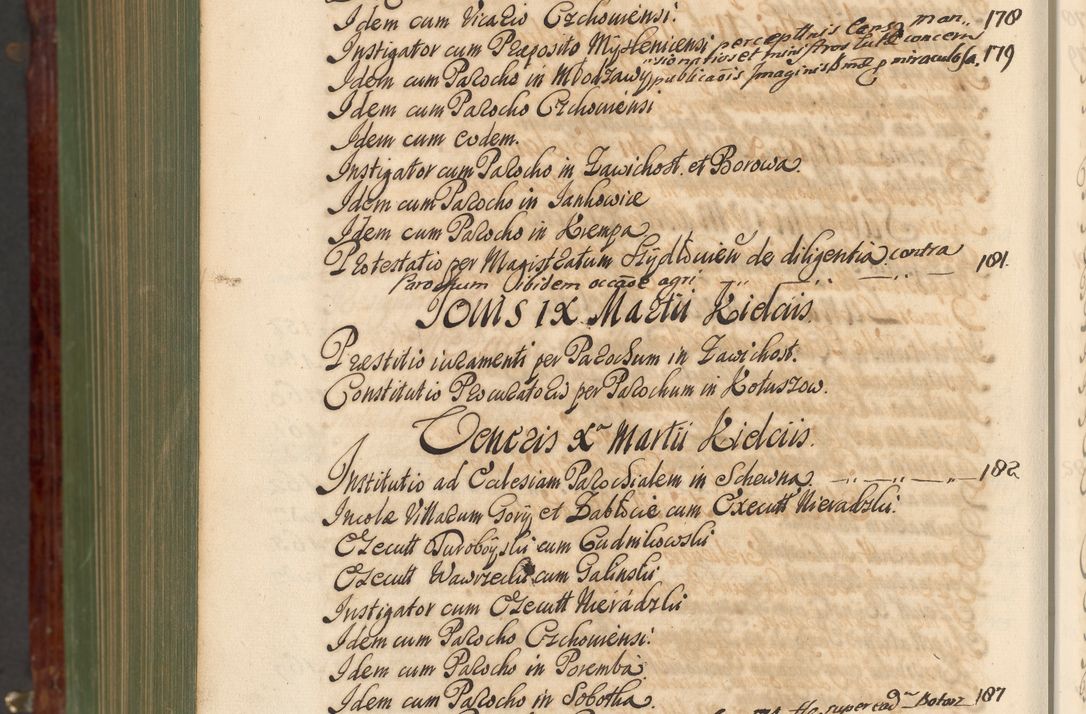 Idem cum Vicario Czchoviensi.
Instigator cum Præposito Mysleniciensi perceptinis Censq man. 178
Idem cum Parocho in Młodzawy publicaōis Imaginis miraculosa. 179
Idem cum Parocho Czchoviensi
Idem cum eodem.
Instigator cum Parocho in Zawichost. et Borowa.
Idem cum Parocho in Jankowice
Idem cum Parocho in Krempa
Protestatio per Magistratum Szydłovień de diligentia contra 181.
Parochum ibidem occāōe agri
Jovis IX Martii Kielciis.
Præstitio iuramenti per Parochum in Zawichost.
Constitutio Procuratoris per Parochum in Kotuszow.
Veneris Xa Martii Kielciis.
Institutio ad Ecclesiam Parochialem in Schewna. 182
Incolæ Villarum Gory et Zabłocie cum Executt Nieradzlii.
Execut Duroboyslii cum Cudnikowslii
Execut Wawrzeclii cum Galinslii
Instigator cum Execut Nierádzlii
Idem cum Parocho Czchoviensi.
Idem cum Parocho in Poremba.
Idem cum Parocho in Sobotka. 187